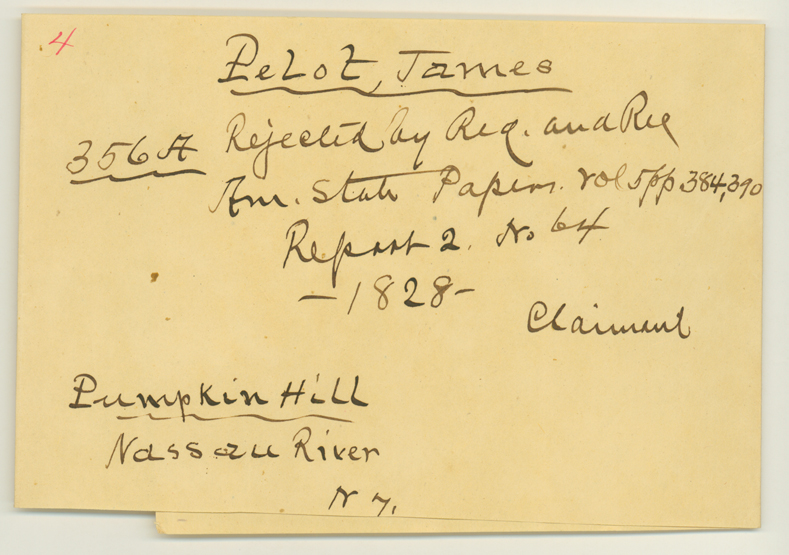 4
Pelot, James
356 A Rejected by Reg. and Rec
Am. State Papers. vol 5 pp 384, 390
Report 2. No 64
- 1828 -
Claimant
Pumpkin Hill
Nassau River
N 7.